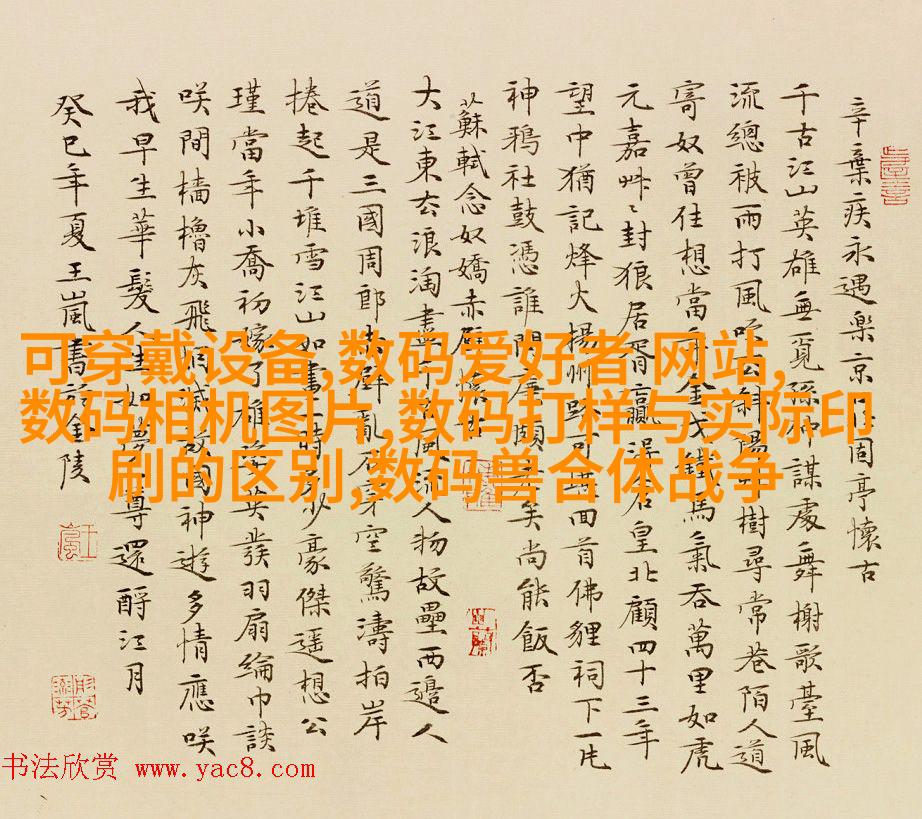 辛棄疾永遇樂京口北固亭懷古
千古江山英雄無覓孫仲謀處舞榭歌臺風
流總被雨打風吹去斜陽草樹尋常巷陌人道
寄奴曾住想當年金戈鐵馬氣吞萬里如虎
元嘉艸〻封狼居胥贏得倉皇北顧四十三年
望中猶記烽火揚州路可堪回首佛貍祠下一片
神鴉社鼓憑誰問廉頗老矣尚能飯否
蘇軾念奴嬌赤壁懷古
大江東去浪淘盡千古風流人物故壘西邊人
道是三國周郎赤壁亂石穿空驚濤拍岸
捲起千堆雪江山如畫一時多少豪傑遥想公
瑾當年小喬初嫁了雄姿英發羽扇綸巾談
咲間檣櫓灰飛烟滅故國神遊多情應咲
我早生華髮人生如夢一尊還酹江月
癸巳年夏王嵐書於金陵
可穿戴设备,数码爱好者 网站,
数码相机图片,数码打样与实际印
刷的区别,数码兽合体战争
书法欣赏 www.yac8.com